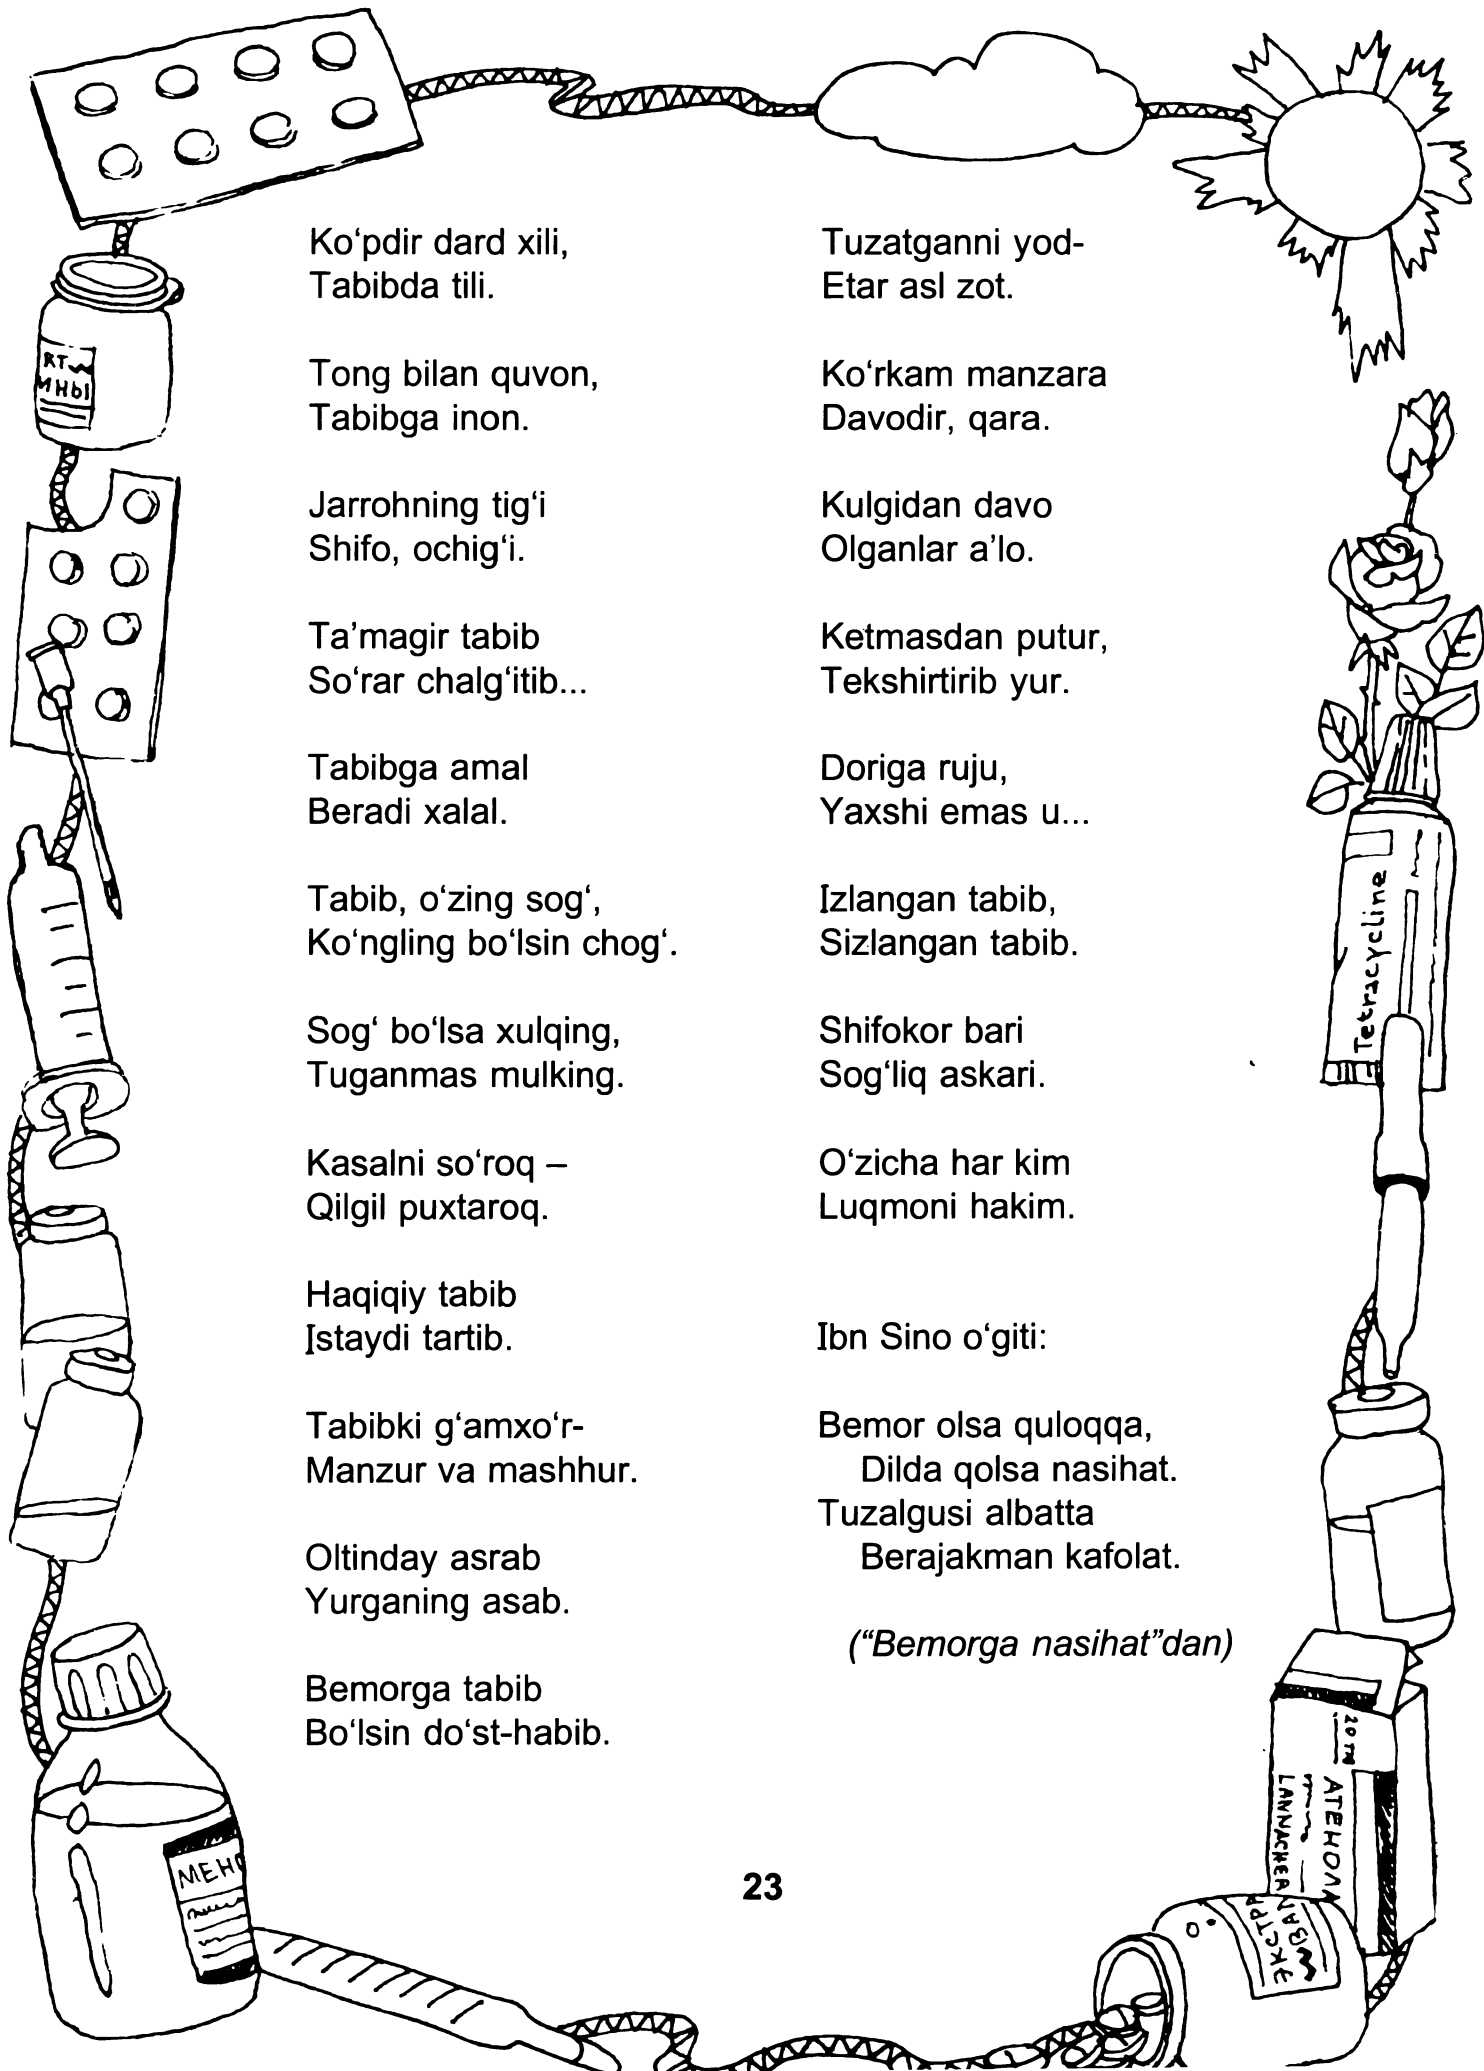 Ko‘pdir dard xili,
Tabibda tili.
Tong bilan quvon,
Tabibga inon.
Jarrohning tig‘i
Shifo, ochig‘i.
Ta’magir tabib
So‘rar chalg‘itib...
Tabibga amal
Beradi xalal.
Tabib, o‘zing sog‘,
Ko‘ngling bo‘lsin chog‘.
Sog‘ bo‘lsa xulqing,
Tuganmas mulking.
Kasalni so‘roq –
Qilgil puxtaroq.
Haqiqiy tabib
Istaydi tartib.
Tabibki g‘amxo‘r-
Manzur va mashhur.
Oltinday asrab
Yurganing asab.
Bemorga tabib
Bo‘lsin do‘st-habib.
Tuzatganni yod-
Etar asl zot.
Ko‘rkam manzara
Davodir, qara.
Kulgidan davo
Olganlar a’lo.
Ketmasdan putur,
Tekshirtirib yur.
Doriga ruju,
Yaxshi emas u...
Izlangan tabib,
Sizlangan tabib.
Shifokor bari
Sog‘liq askari.
O‘zicha har kim
Luqmoni hakim.
Ibn Sino o‘giti:
Bemor olsa quloqqa,
Dilda qolsa nasihat.
Tuzalgusi albatta
Berajakman kafolat.
(“Bemorga nasihat”dan)
23
Tetracycline
20 ТМ
АТЕНОЛ
LANNACHER
ЭКСТРА
ВАЛ
МЕНО